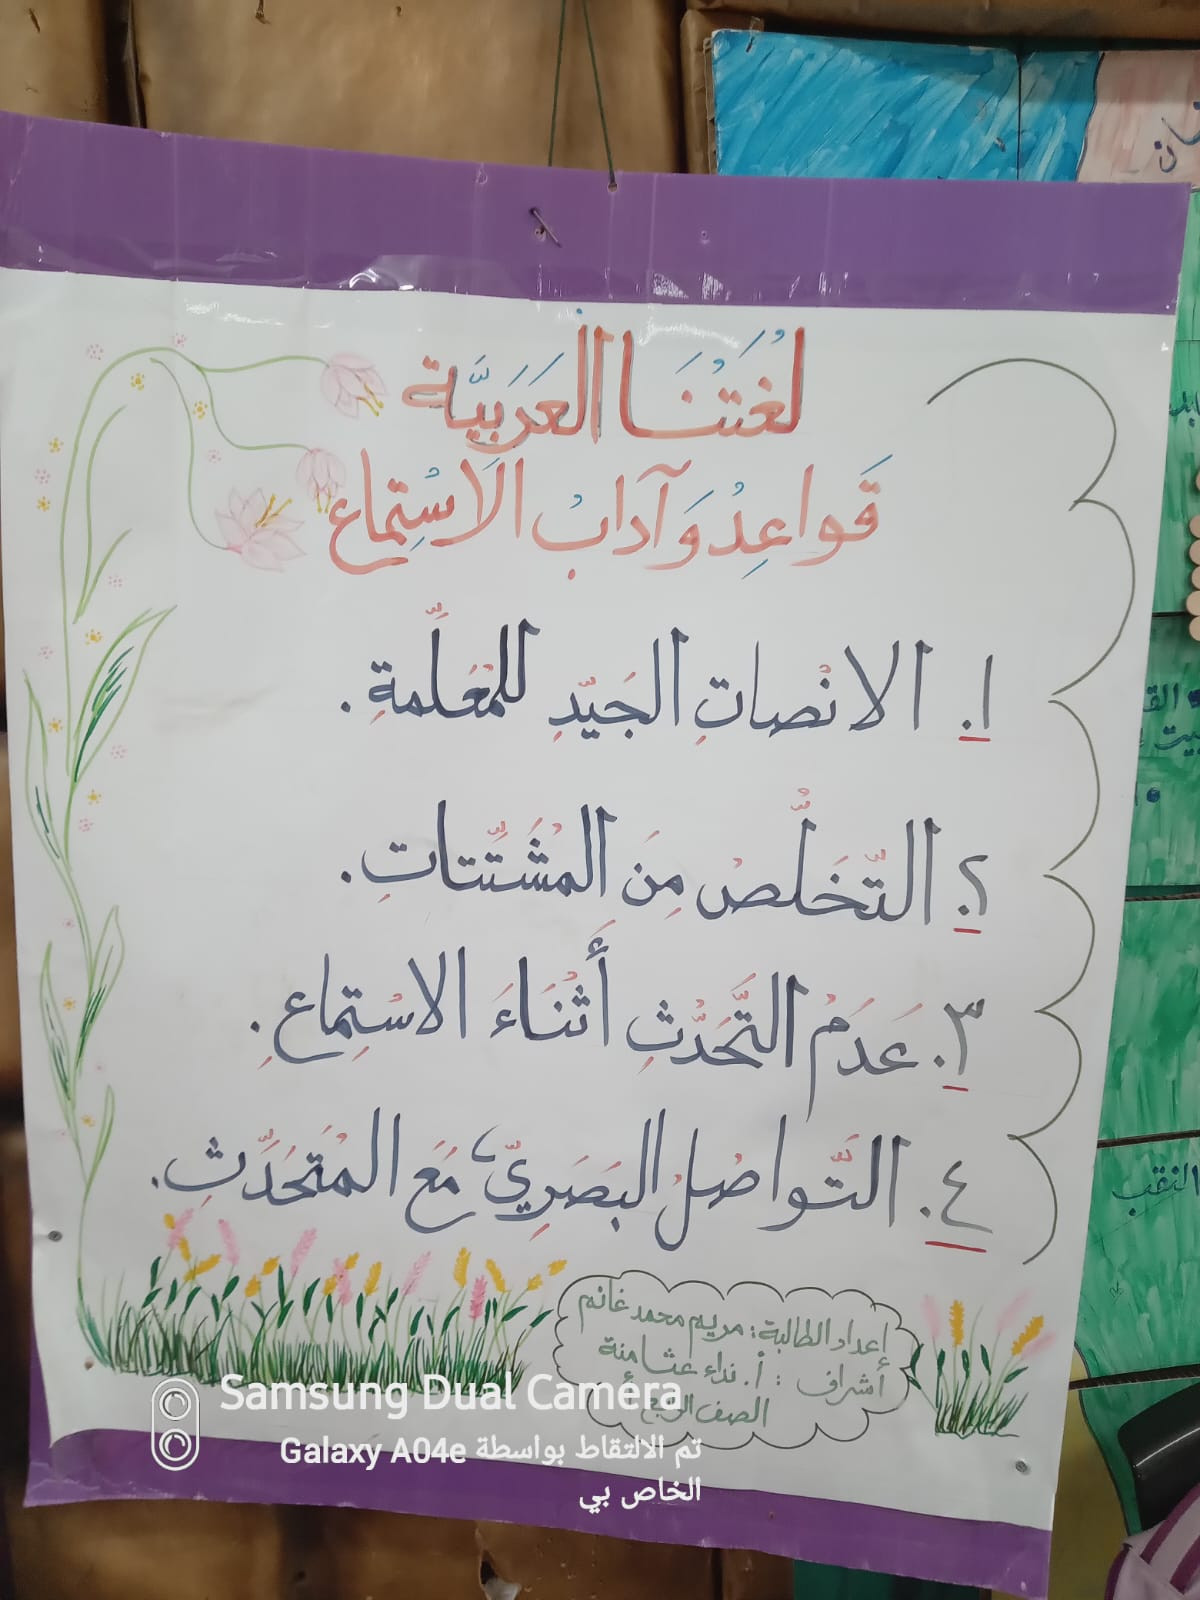 لُغَتُنَا العَرَبِيَّة
قَواعِدُ وَآدابُ الاسْتِماع
١. الانْصاتِ الجَيّدِ للمُعَلّمةِ.
٢. التّخَلّصْ مِنَ المُشَتّتات.
٣. عَدَمْ التَّحَدّثِ أَثْنَاءَ الاسْتِماعِ.
٤. التَّواصُلْ البَصَرِيّ، مَع المُتَحَدَّثِ.
اعداد الطالبة: مريم محمد غانم
أشراف : أ. نداء عثامنة
الصف الرابع
Samsung Dual Camera
تم الالتقاط بواسطة Galaxy A04e
الخاص بي
القـ
بيت
النقب